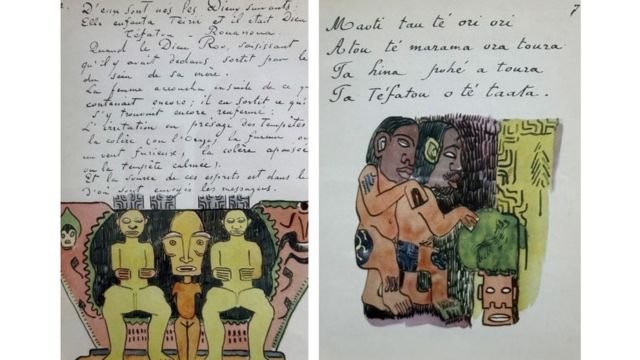 D'eux sont nés les Dieux suivants :
Elle enfanta Téirii et il était Dieu
Téfatou – Rouanoua.
Quand le Dieu Roo, saisissant
qu'il y avait dedans, sortit par le
du sein de sa mère.
La femme accoucha ensuite de ce
contenait encore ; il en sortit ce qui
s'y trouvait encore renfermé :
L'irritation ou présage des tempêtes
la colère (ou l'orage) la fureur ou
un vent furieux, la colère apaisée
ou la tempête calmée).
Et la source de ces esprits est dans l
D'où sont envoyés les messagers.
7
Maoti tau té ori ori
Atou té marama ora toura
Ta hina pohé a toura
Ta Téfatou o té taata.